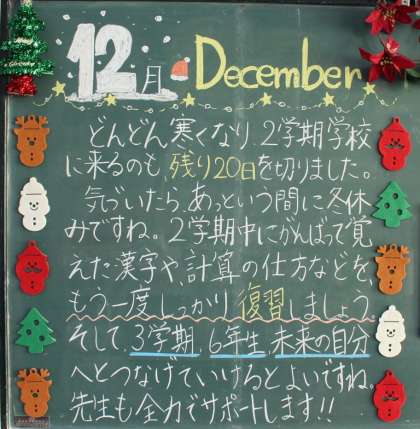 12月 December
どんどん寒くなり、2学期学校
に来るのも、残り20日を切りました。
気づいたら、あっという間に冬休
みですね。2学期中にがんばって覚
えた漢字や、計算の仕方などを、
もう一度しっかり復習しましょう。
そして、3学期、6年生、未来の自分
へとつなげていけるとよいですね。
先生も全力でサポートします!!